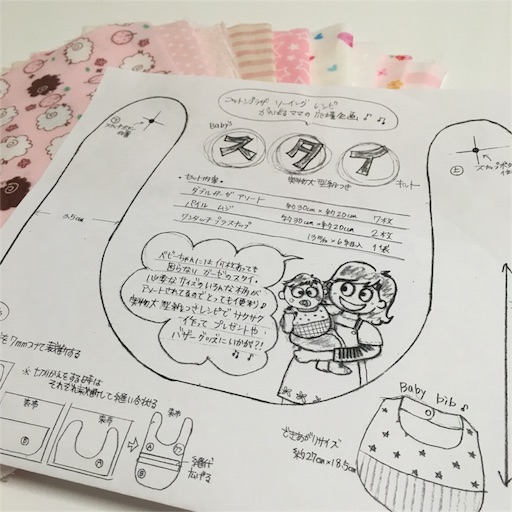 コットンプラザ ソーイング レシピ
がんばるママの応援企画♪♪
Baby's
スタイ
実物大型紙つき
キット
・セット内容・
ダブルガーゼ アソート 約30cm×約20cm 7枚
パイル ムジ 約30cm×約20cm 2枚
ワンタッチプラスナップ 13m/m×6組入 1袋
ベビーちゃんには何枚あっても
困らない ガーゼのスタイ。
必要なサイズのいろんな柄が
アソートされてるのでとっても便利♪
実物大型紙つきレシピで サクサク
作って プレゼントや
バザーグッズにいかが?!
Baby bib
できあがりサイズ
約27cm×18.5cm
を7mmつけて裁断する
※ 切りかえをする時は
それぞれ裁断して縫い合わせる
表布
表布
表布
Ⓐ
Ⓑ
縫代